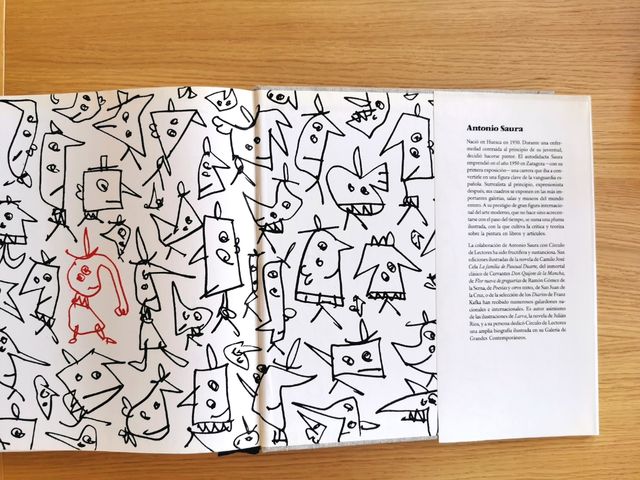 Antonio Saura
Nació en Huesca en 1930. Durante una enfer-
medad contraída al principio de su juventud,
decidió hacerse pintor. El autodidacta Saura
emprendió en el año 1950 en Zaragoza —con su
primera exposición— una carrera que iba a con-
vertirle en una figura clave de la vanguardia es-
pañola. Surrealista al principio, expresionista
después, sus cuadros se exponen en las más im-
portantes galerías, salas y museos del mundo
entero. A su prestigio de gran figura internacio-
nal del arte moderno, que no hace sino acrecen-
tarse con el paso del tiempo, se suma una pluma
ilustrada, con la que cultiva la crítica y teoriza
sobre la pintura en libros y artículos.
La colaboración de Antonio Saura con Círculo
de Lectores ha sido fructífera y sustanciosa. Sus
ediciones ilustradas de la novela de Camilo José
Cela La familia de Pascual Duarte, del inmortal
clásico de Cervantes Don Quijote de la Mancha,
de Flor nueva de greguerías de Ramón Gómez de
la Serna, de Poesía y otros textos, de San Juan de
la Cruz, o de la selección de los Diarios de Franz
Kafka han recibido numerosos galardones na-
cionales e internacionales. Es autor asimismo
de las ilustraciones de Larva, la novela de Julián
Ríos, y a su persona dedicó Círculo de Lectores
una amplia biografía ilustrada en su Galería de
Grandes Contemporáneos.